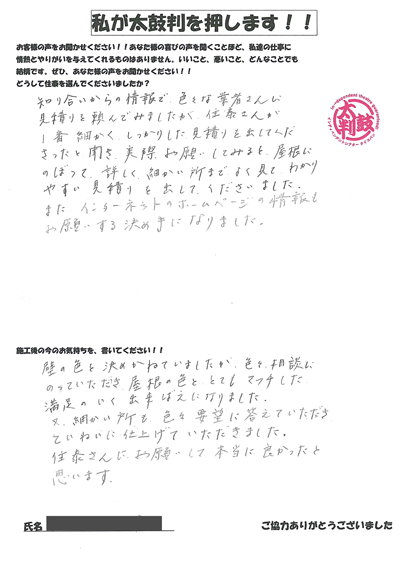 私が太鼓判を押します！！
お客様の声をお聞かせください！！あなた様の喜びの声を聞くことほど、私達の仕事に
情熱とやりがいを与えてくれるものはありません。いいこと、悪いこと、どんなことでも
結構です。ぜひ、あなた様の声をお聞かせください！！
どうして住泰を選んでくださいましたか？
知り合いからの情報で、色々な業者さんに
見積りを頼んでみましたが、住泰さんが
1番細かく、しっかりした見積りを出してくだ
さったと聞き、実際お願いしてみると、屋根に
のぼって、詳しく細かい所までよく見て、わかり
やすい見積りを出してくださいました。
また インターネットのホームページの情報も
お願いする決め手になりました。
太鼓判
施工後の今のお気持ちを、書いてください！！
壁の色を決めかねていましたが、色々相談に
のっていただき、屋根の色ととてもマッチした
満足のいく出来ばえになりました。
又、細かい所も、色々要望に答えていただき
ていねいに仕上げていただきました。
住泰さんにお願いして本当に良かったと
思います。
氏名
ご協力ありがとうございました